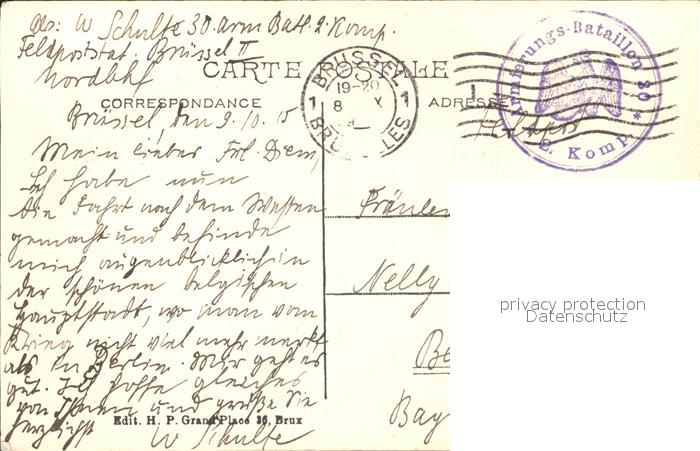 Abs: W Schultze 30. Arm Batl. 2. Komp.
Feldpoststat. Brüssel II
Nordbhf
CARTE POSTALE
CORRESPONDANCE
ADRESSE
BRUSSEL
19-20
1 8 X 1
BRUXELLES
Armierungs-Bataillon 30 *
2. Komp.
Feldpost
Brüssel, den 9.10.15
Mein lieber Frl.
Ich habe nun
die Fahrt nach dem Westen
gemacht und befinde
mich augenblicklich in
der schönen belgischen
Hauptstadt, wo man vom
Krieg nicht viel mehr merkt
als in Berlin. Mir geht es
gut. Ich hoffe gleiches
von Ihnen und grüße Sie
herzlichst W Schultze
Edit. H. P. Grand Place 36, Brux
Fräulein
Nelly
Be
Bay
privacy protection
Datenschutz